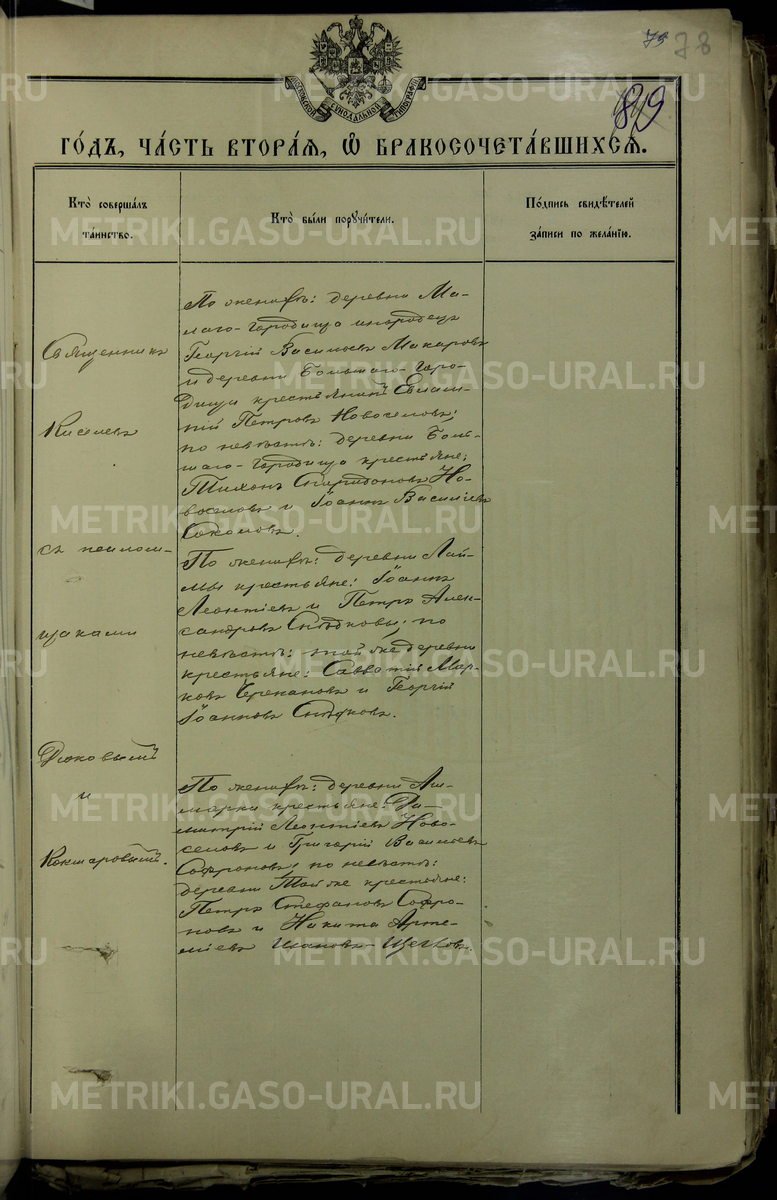 78
89
МОСКОВСКОЙ СѴНОДАЛЬНОЙ ТИПОГРАФІИ
ГО́ДЪ, ЧА́СТЬ ВТОРА́Я, Ѽ БРАКОСОЧЕТА́ВШИХСЯ.
Кто̀ соверша́лъ
та́инство.
Кто̀ бы́ли поручи́тели.
По́дпись свидѣ́телей
за́писи по жела́нїю.
Священникъ
Киселевъ
съ псалом-
щиками
и
Кокшаровымъ.
По женихѣ: деревни Ма-
лаго-Городища инородецъ
Георгій Васильевъ Макаровъ
и деревни Большаго-Горо-
дища крестьянинъ Евлам-
пій Петровъ Новоселовъ;
по невѣстѣ: деревни Боль-
шаго-Городища крестьяне:
Тихонъ Спиридоновъ Но-
воселовъ и Іоаннъ Василіевъ
Соколовъ.
По женихѣ: деревни Лай-
мы крестьяне: Іоаннъ
Леонтіевъ и Петръ Алек-
сандровъ; по
невѣстѣ: той же деревни
крестьяне: Савватій Мар-
ковъ и Георгій
Іоанновъ
По женихѣ: деревни
крестьяне: Ди-
митрій Леонтіевъ Ново-
селовъ и Григорій Васильевъ
Софроновъ; по невѣстѣ:
деревни той же крестьяне:
Петръ Стефановъ Софро-
новъ и Никита Арте-
міевъ
METRIKI.GASO-URAL.RU